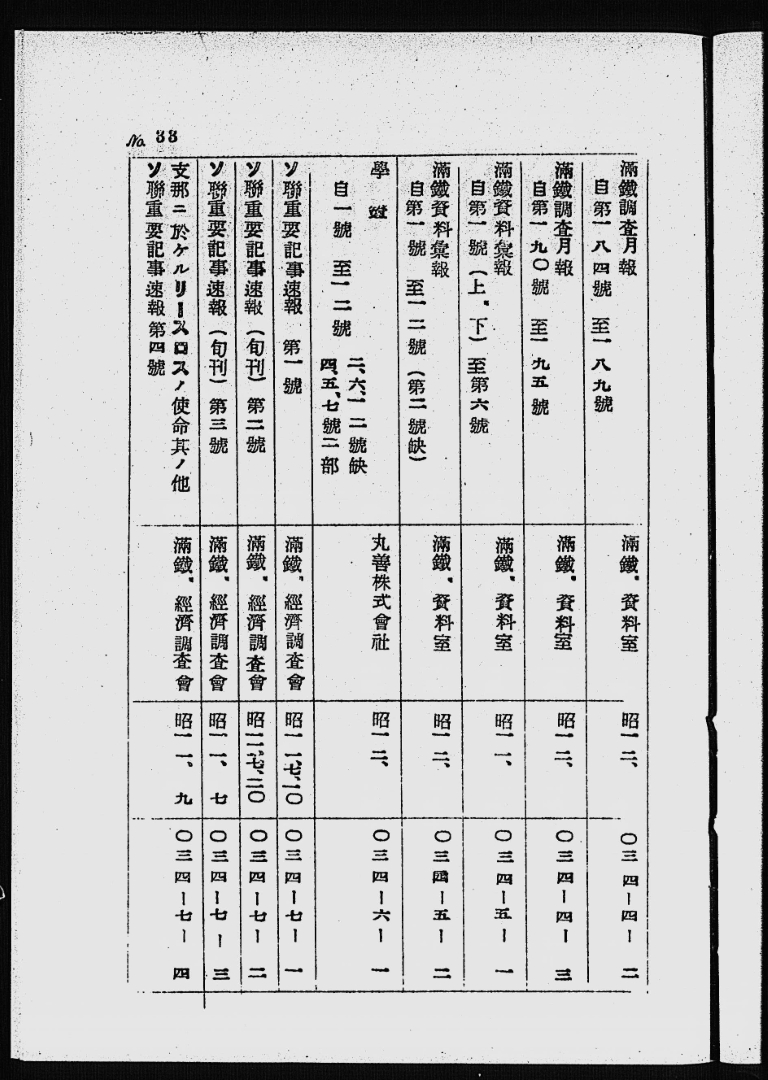 No. 33
滿鐵調査月報
自第一八四號 至一八九號
滿鐵、資料室
昭一二、
〇三四—四— 二
滿鐵調査月報
自第一九〇號 至一九五號
滿鐵、資料室
昭一二、
〇三四—四— 三
滿鐵資料彙報
自第一號(上、下)至第六號
滿鐵、資料室
昭一一、
〇三四—五— 一
滿鐵資料彙報
自第一號 至一二號(第二號缺)
滿鐵、資料室
昭一二、
〇三四—五— 二
學鐙
自一號 至一二號
二、六、一二號缺
四、五、七號二部
丸善株式會社
昭一二、
〇三四—六— 一
ソ聯重要記事速報 第一號
滿鐵、經濟調査會
昭一一、七、一〇
〇三四—七— 一
ソ聯重要記事速報(旬刊)第二號
滿鐵、經濟調査會
昭一一、七、二〇
〇三四—七— 二
ソ聯重要記事速報(旬刊)第三號
滿鐵、經濟調査會
昭一一、 七
〇三四—七— 三
支那ニ於ケルリースロスノ使命其ノ他
ソ聯重要記事速報第四號
滿鐵、經濟調査會
昭一一、 九
〇三四—七— 四